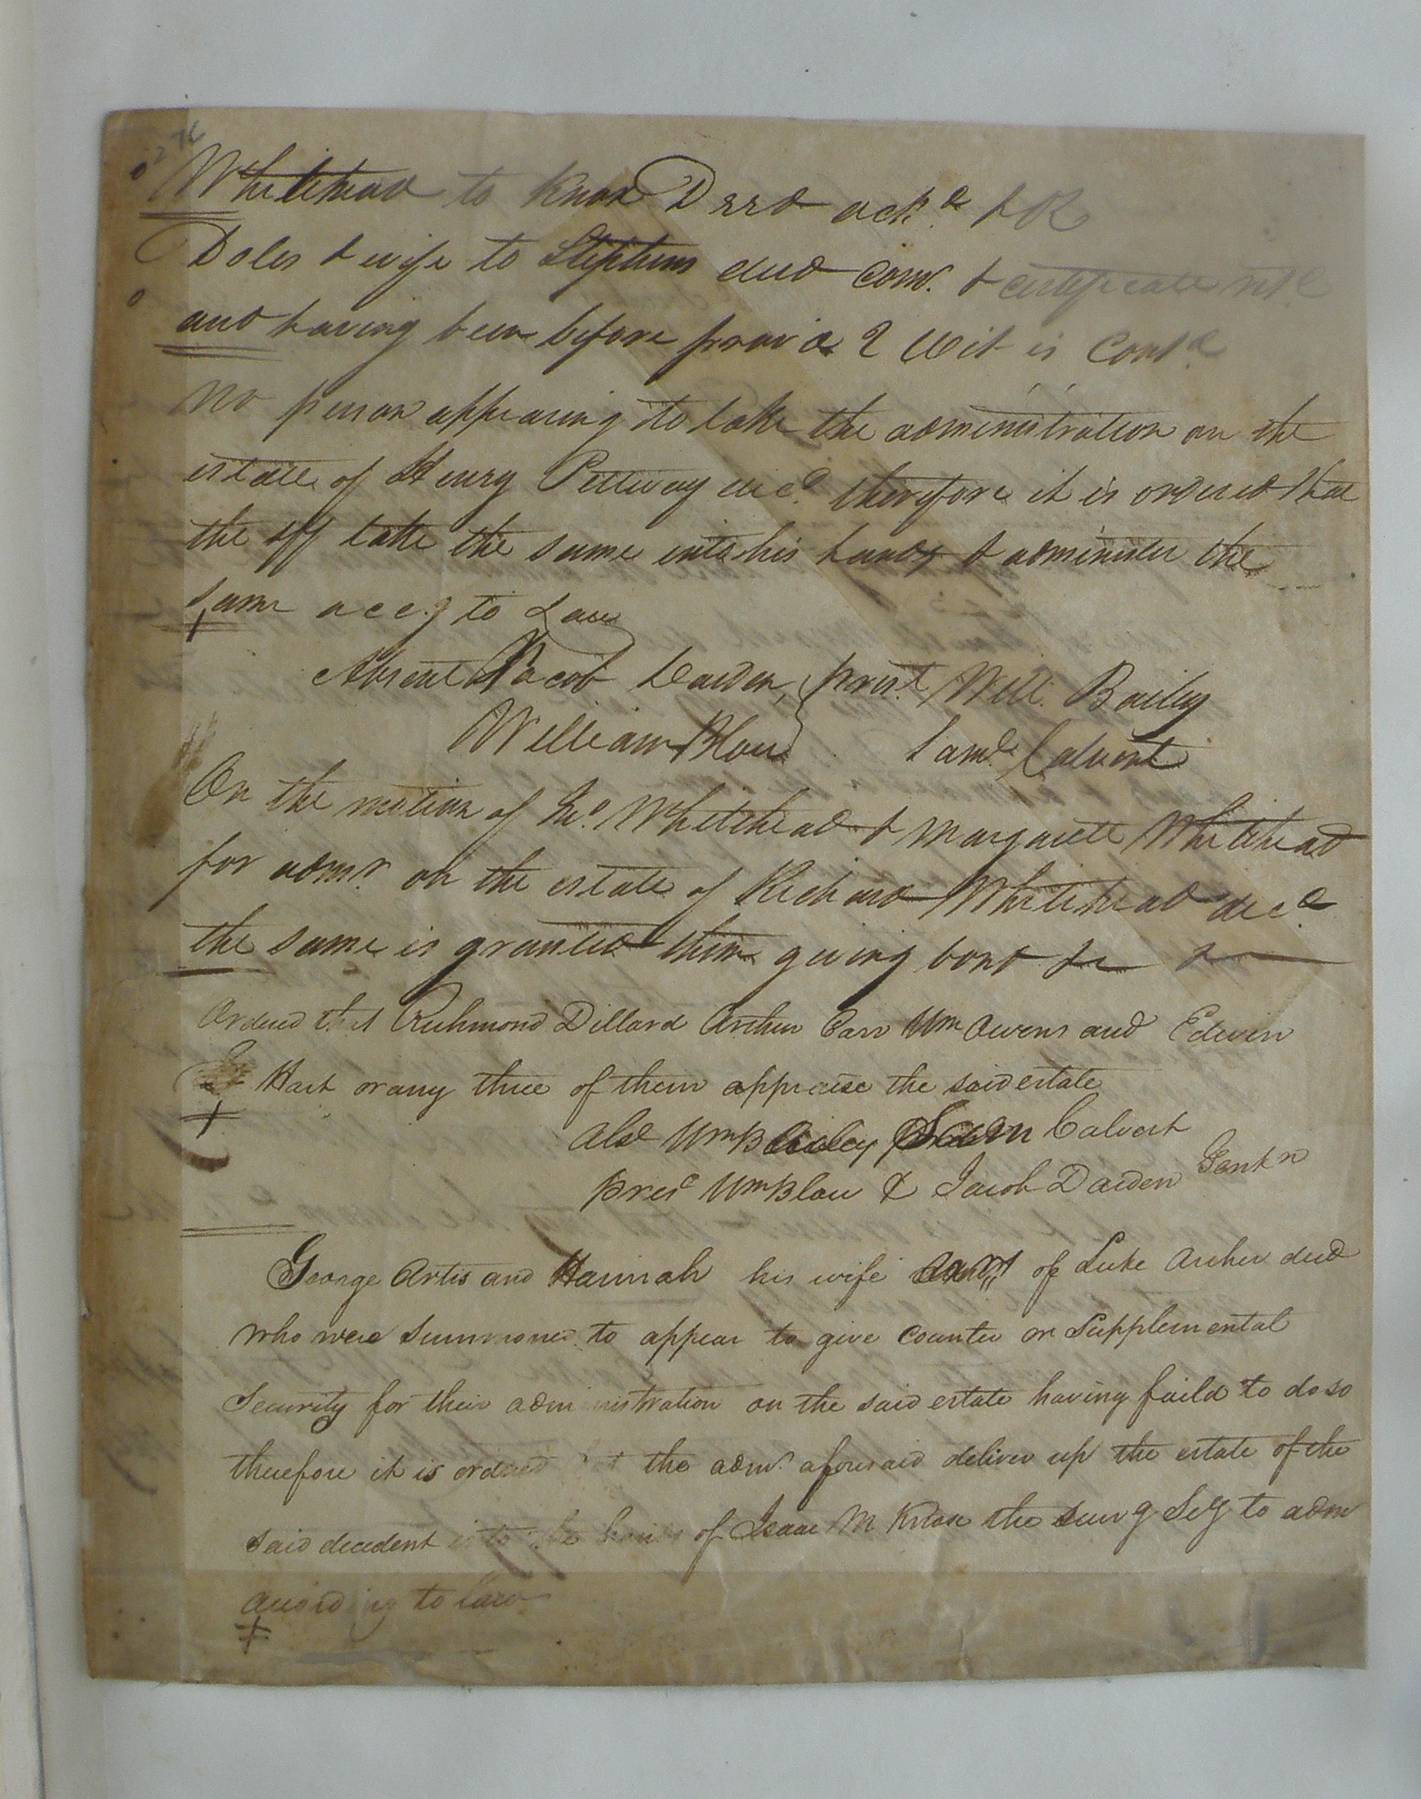 Whitehead to Knox Deed ackd. & OR
Doles & wife to Stephens deed com. & certificate retd.
and having been before provd 2 Wit is Contd.
No person appearing to take the administration on the
estate of Henry Pettway decd. therefore it is ordered that
the Sff take the same into his hands & administer the
same accg to Law
Absent Jacob Darden, prest. Will. Bailey
William Blow Saml. Calvert
On the motion of Jno. Whitehead & Margarett Whitehead
for admr. on the estate of Richard Whitehead decd.
the same is granted them giving bond &c &
Ordered that Richmond Dillard Arthur Carr Wm Owens and Edwin
Hart or any three of them appraise the said estate
Abst Wm Bailey Calvert
Prest Wm Blow & Jacob Darden Gentn
George Artis and Hannah his wife of Luke Archer decd
who were summoned to appear to give counter or supplemental
Security for their administration on the said estate having faild to do so
therefore it is ordered that the admr. aforesaid deliver up the estate of the
said decedent into the hands of Isaac M the to adm
according to law